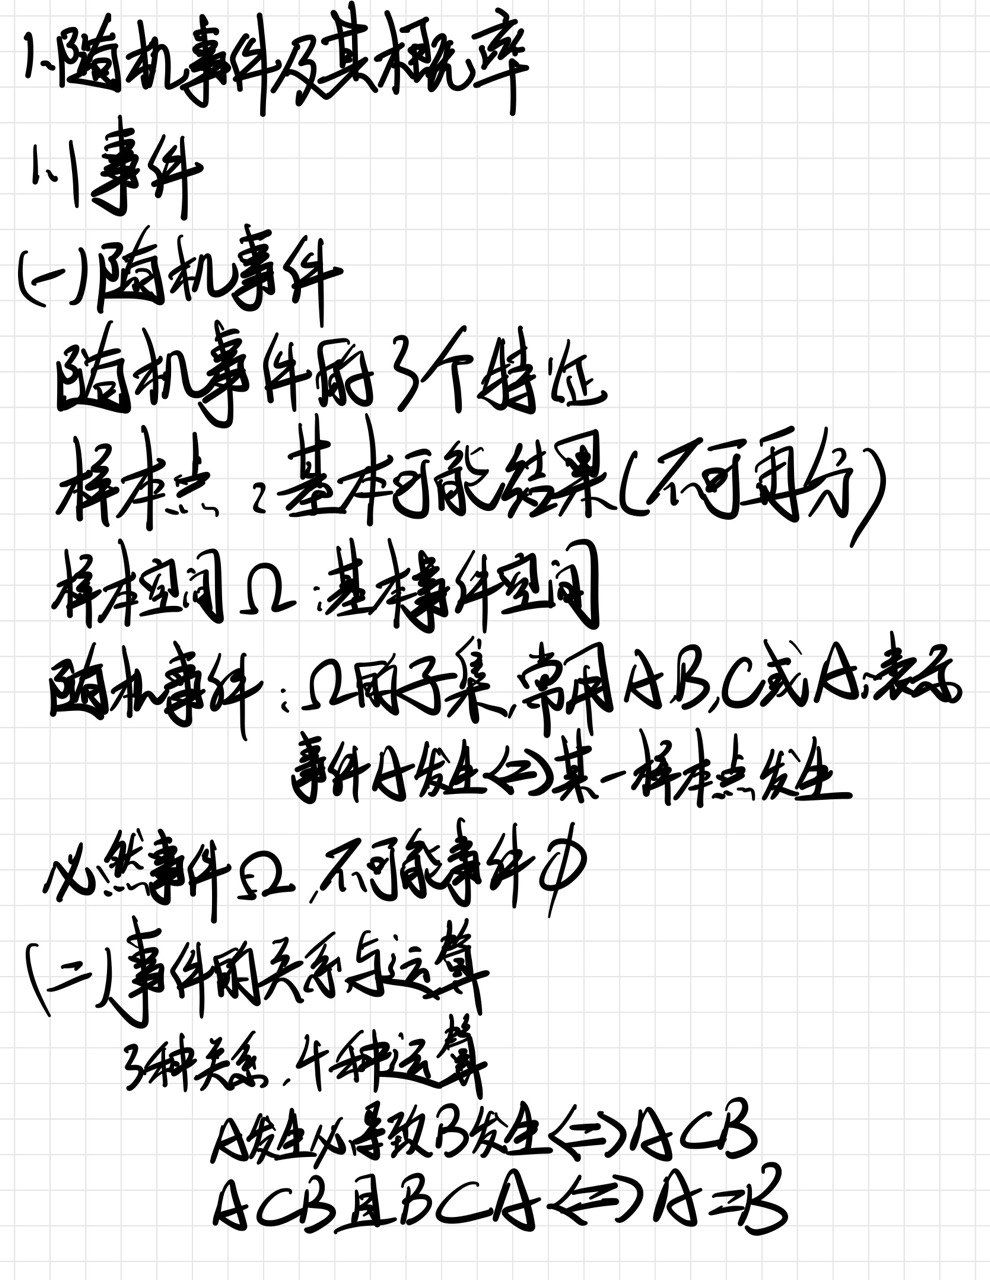 1.随机事件及其概率
1.1事件
(一)随机事件
随机事件的3个特征
样本点：基本可能结果(不可再分)
样本空间Ω:基本事件空间
随机事件：Ω的子集,常用A,B,C或Aᵢ表示
事件A发生⇔某一样本点发生
必然事件Ω,不可能事件φ
(二)事件的关系与运算
3种关系,4种运算
A发生必导致B发生⇔A⊂B
A⊂B且B⊂A⇔A=B